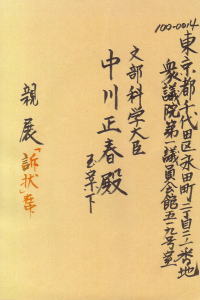 100-0014
東京都千代田区永田町二丁目二ノ一番地
衆議院第一議員会館五一九号室
文部科学大臣
中川正春殿
玉案下
親展「訴状」在中